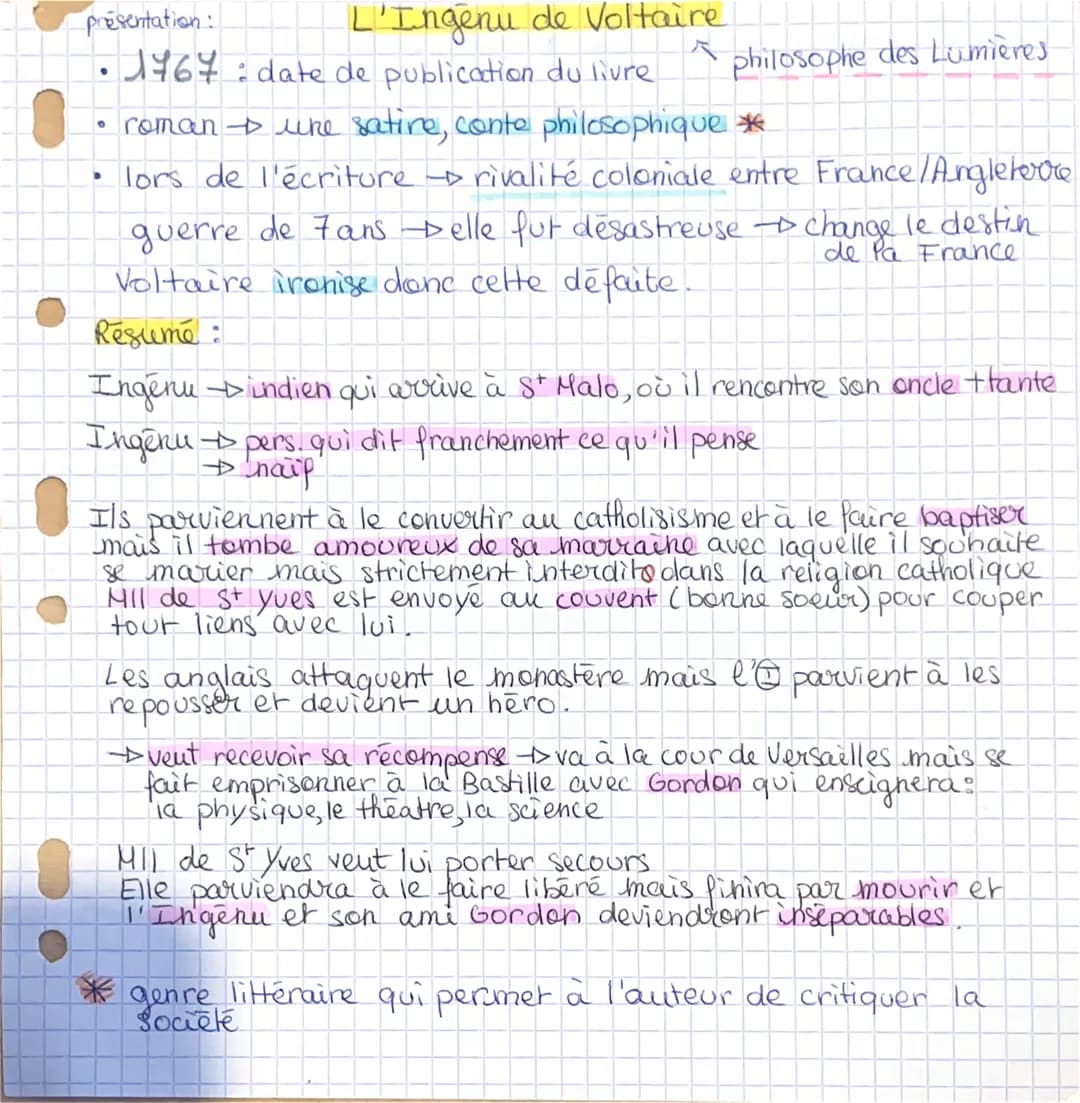 présentation :
L'Ingénu de Voltaire
philosophe des Lumières
• 1767 : date de publication du livre
• roman → une satire, conte philosophique *
• lors de l'écriture → rivalité coloniale entre France/Angleterre
guerre de 7 ans → elle fut désastreuse → change le destin
de la France
Voltaire ironise donc cette défaite.
Résumé :
Ingénu → indien qui arrive à St Malo, où il rencontre son oncle + tante
Ingénu → pers. qui dit franchement ce qu'il pense
→ naïf
Ils parviennent à le convertir au catholisisme et à le faire baptiser
mais il tombe amoureux de sa marraine avec laquelle il souhaite
se marier mais strictement interdit dans la religion catholique
Mll de St Yves est envoyé au couvent (bonne soeur) pour couper
tout liens avec lui.
Les anglais attaquent le monastère mais l'Ⓘ parvient à les
repousser et devient un héro.
→ veut recevoir sa récompense → va à la cour de Versailles mais se
fait emprisonner à la Bastille avec Gordon qui enseignera :
la physique, le théatre, la science
Mll de St Yves veut lui porter secours
Elle parviendra à le faire libéré mais finira par mourir et
l'Ingénu et son ami Gordon deviendront inséparables.
* genre littéraire qui permet à l'auteur de critiquer la
société